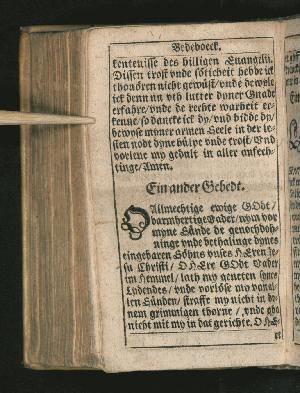 Bedeboeck.
kentenisse des billigen Euangelii.
Dissen trost vnde söticheit hebbe ick
thouören nicht gewüst/ vnde dewyle
ick denn nu vth lutter dyner Gnade
erfahre/ vnde de rechte warheit er-
kenne/ so dancke ick dy/ vnd bidde dy/
bewyse myner armen Seele in der le-
sten nodt dyne hülpe vnde trost/ Vnd
vorlene my gedult in aller anfech-
tinge/ Amen.
Ein ander Gebedt.
Allmechtige ewige GOdt/
barmhertige Vader/ nym vor
myne Sünde de genochdoh-
ninge vnde bethalinge dynes
eingebaren Söhns vnses HEren Je-
su Christi/ O HEre GOdt Vader
im Hemmel/ lath my geneten synes
Lydendes/ vnde vorlöse my van al-
len Sünden/ straffe my nicht in dy-
nem grimmigen thorne/ vnde gha
nicht mit my in dat gerichte. O HE-